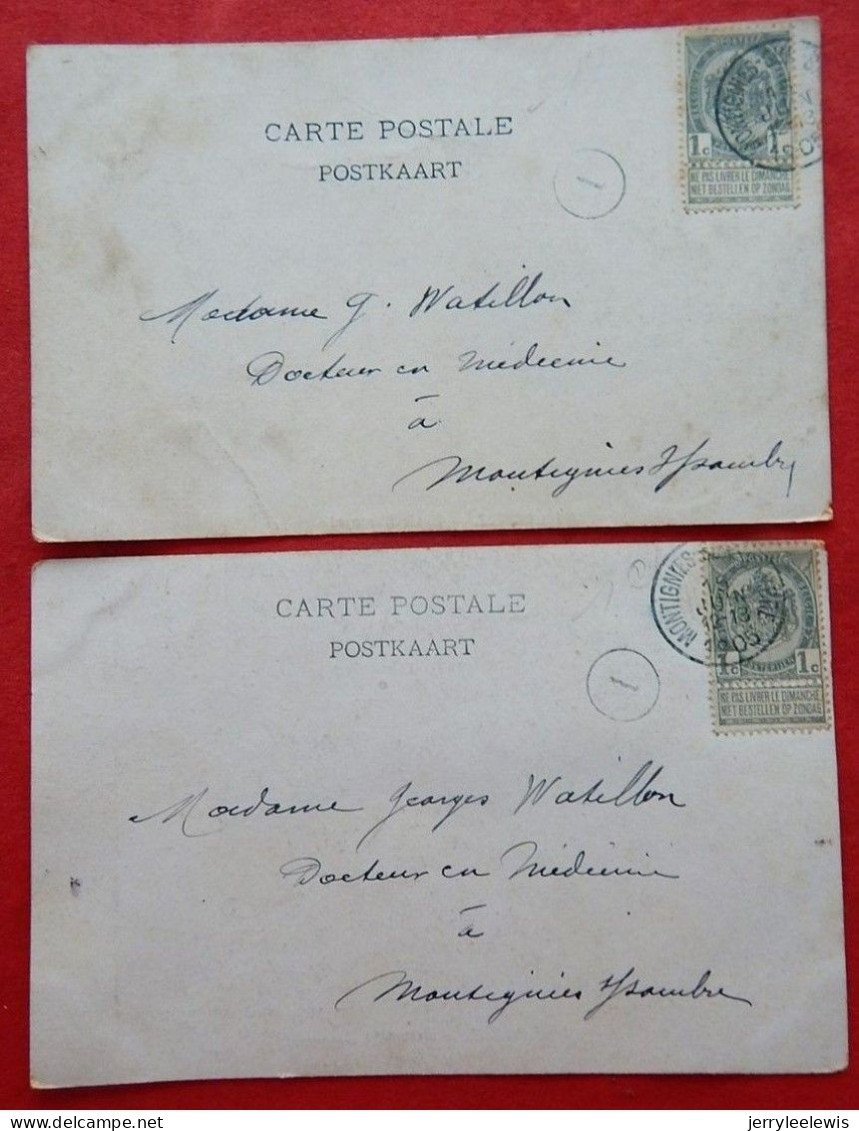 CARTE POSTALE
POSTKAART
1c 1c
NE PAS LIVRER LE DIMANCHE
NIET BESTELLEN OP ZONDAG
MONTIGNIES
1
Madame G. Watillon
Docteur en Médecine
à
Montignies s/Sambre
CARTE POSTALE
POSTKAART
MONTIGNIES
1c 1c
NE PAS LIVRER LE DIMANCHE
NIET BESTELLEN OP ZONDAG
1
Madame Georges Watillon
Docteur en Médecine
à
Montignies s/Sambre
delcampe.net
jerryleelewis